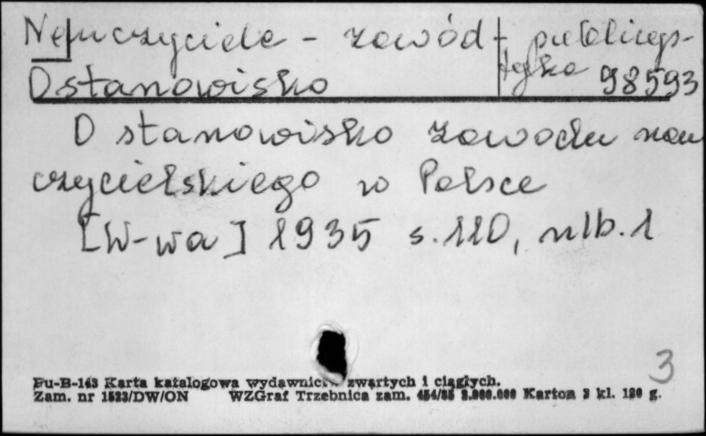 Nauczyciele - zawód + publicys-
tyka 98593
O stanowisko
O stanowisko zawodu nau
czycielskiego w Polsce
[W-wa] 1935 s.110, nlb.1
3
Pu-B-143 Karta katalogowa wydawnictw zwartych i ciągłych.
Zam. nr 1523/DW/ON WZGraf Trzebnica zam. 454/85 Karton 3 kl. 180 g.